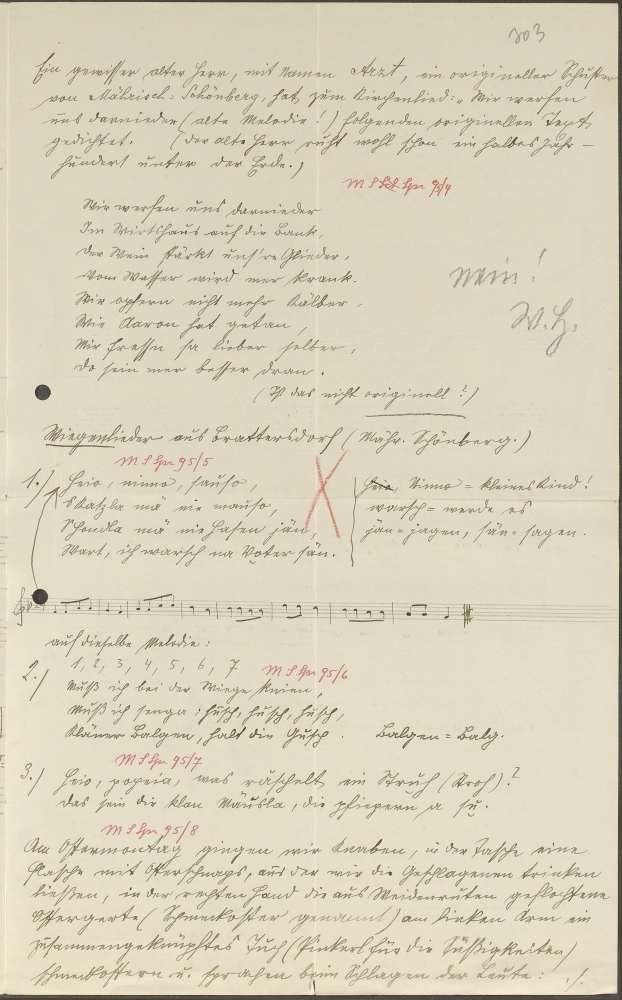 303
Ein gewisser alter Herr, mit Namen Arzt, ein origineller Schuster
von Mährisch-Schönberg, hat zum Kirchenlied: "Wir werfen
uns darnieder (alte Melodie!) folgenden originellen Text
gedichtet. (Der alte Herr ruht wohl schon ein halbes Jahr-
hundert unter der Erde.)
Wir werfen uns darnieder
Im Wirtshaus auf die Bank,
Der Wein stärkt uns're Glieder,
Vom Wasser wird mer krank.
Wir opfern nicht mehr Kälber,
Wie Aaron hat getan,
Wir fressn sa lieber selber,
Do sein mer besser dran.
(Ist das nicht originell?)
nein!
W. H.
Wiegenlieder aus Brattersdorf (Mähr. Schönberg.)
95/5
1.) Heio, ninno, sauso,
s Katzla mä nie mauso,
Schondla mä nie Hasen jän,
Wart, ich warsch na Voter sän.
Ninno = kleines Kind!
warsch = werde es
jän = jagen, sän = sagen.
auf dieselbe Melodie:
1, 2, 3, 4, 5, 6, 7
95/6
2.) Muß ich bei der Wiege knien,
Muß ich senga: husch, husch, husch,
Kläner Balgen, halt die Gusch.
Balgen = Balg.
95/7
3.) Heio, popeia, was räschelt ein Struh (Stroh)?
Das sein die klan Mäusla, die pfiepern a su.
95/8
Am Ostermontag gingen wir Knaben, in der Tasche eine
Flasche mit Osterschnaps, aus der wir die Geschlagenen trinken
ließen, in der rechten Hand die aus Weidenruten geflochtene
Ostergerte (Schmeckoster genannt) am linken Arm ein
zusammengeknüpftes Tuch (Pinkerl für die Süßigkeiten)
schmeckostern u. sprachen beim Schlagen der Leute: ./.